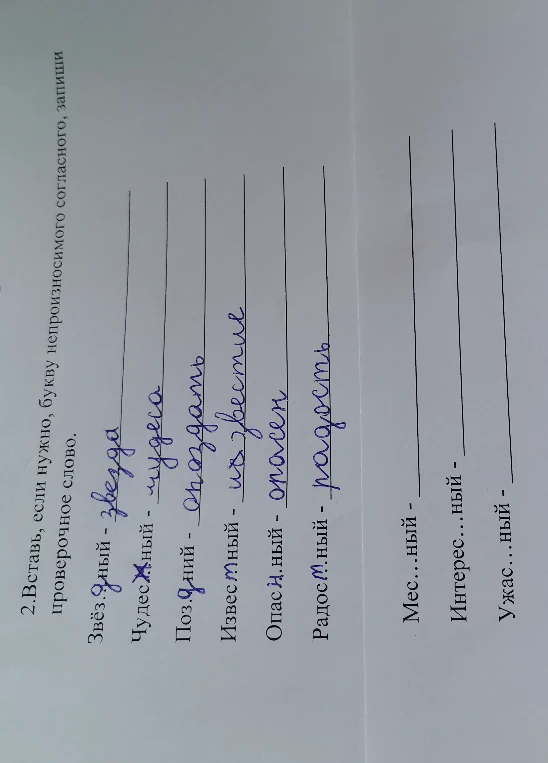 2.Вставь, если нужно, букву непроизносимого согласного, запиши
проверочное слово.
Звёз.дный - звезда
Чудес ный - чудеса
Поз.дний - опоздать
Известный - известие
Опас .ный - опасен
Радост.ный - радость
Мес...ный -
Интерес...ный -
Ужас...ный -